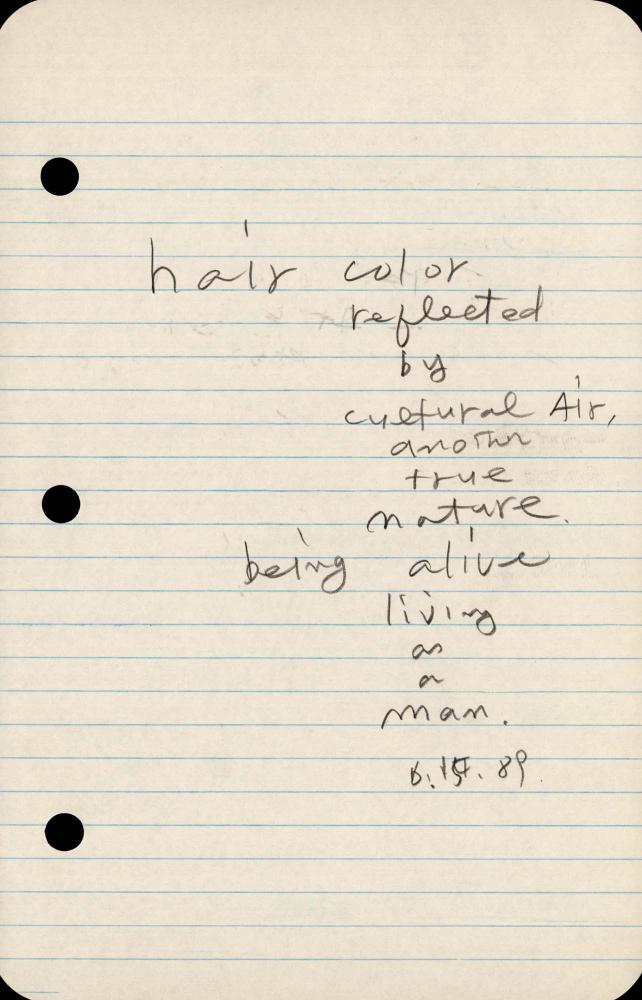 hair color
reflected
by
cultural Air,
another
true
nature.
being alive
living
as
a
man.
6.15.89.